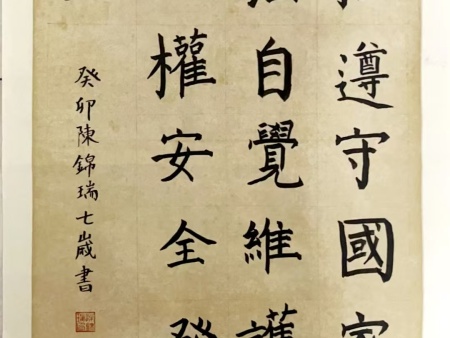 遵守國家
自覺維護
權安全發
癸卯陳錦瑞七歲書